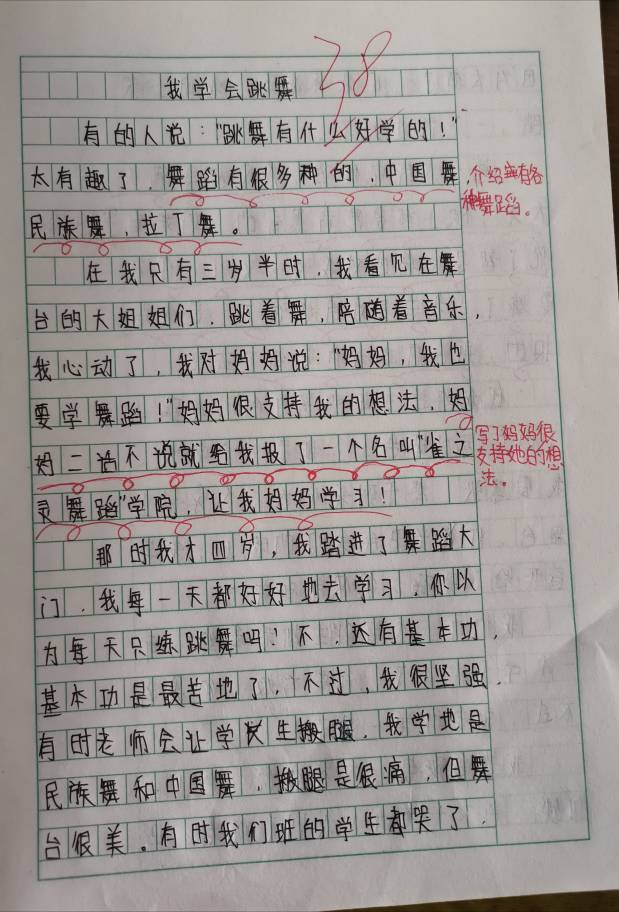 38
我学会跳舞
有的人说："跳舞有什么好学的！"
太有趣了，舞蹈有很多种的，中国舞
民族舞，拉丁舞。
介绍舞有各
种舞蹈。
在我只有三岁半时，我看见在舞
台的大姐姐们，跳着舞，陪随着音乐，
我心动了，我对妈妈说："妈妈，我也
要学舞蹈！"妈妈很支持我的想法，妈
妈二话不说就给我报了一个名叫"雀之
灵舞蹈"学院，让我妈妈学习！
写了妈妈很
支持她的想
法。
那时我才四岁，我踏进了舞蹈大
门，我每一天都好好地去学习，你以
为每天只练跳舞吗？不，还有基本功，
基本功是最苦地了，不过，我很坚强，
有时老师会让学生搬腿，我学地是
民族舞和中国舞，搬腿是很痛，但舞
台很美。有时我们班的学生都哭了，